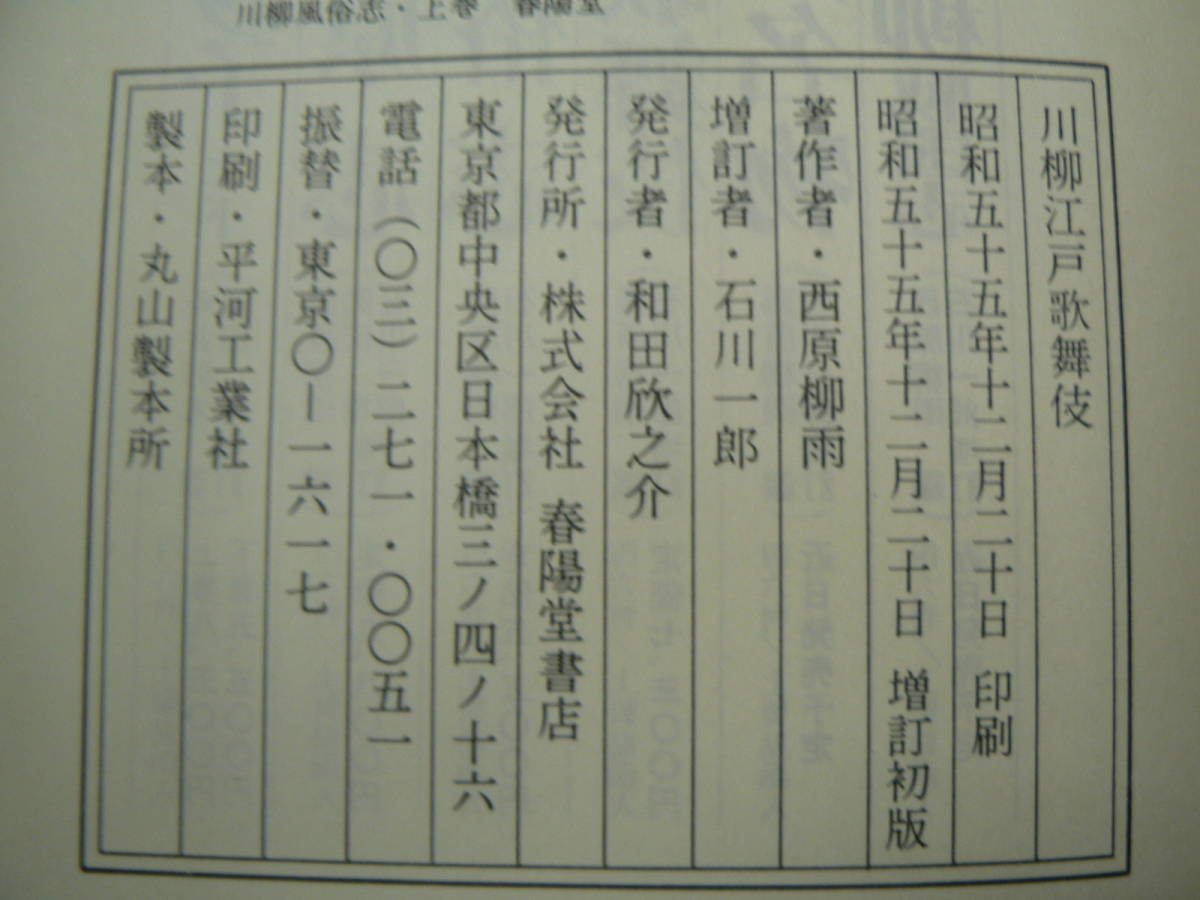 川柳風俗志・上巻　春陽堂
川柳江戸歌舞伎
昭和五十五年十二月二十日　印刷
昭和五十五年十二月二十日　増訂初版
著作者・西原柳雨
増訂者・石川一郎
発行者・和田欣之介
発行所・株式会社　春陽堂書店
東京都中央区日本橋三ノ四ノ十六
電話（〇三）二七一・〇〇五一
振替・東京〇―一六一七
印刷・平河工業社
製本・丸山製本所